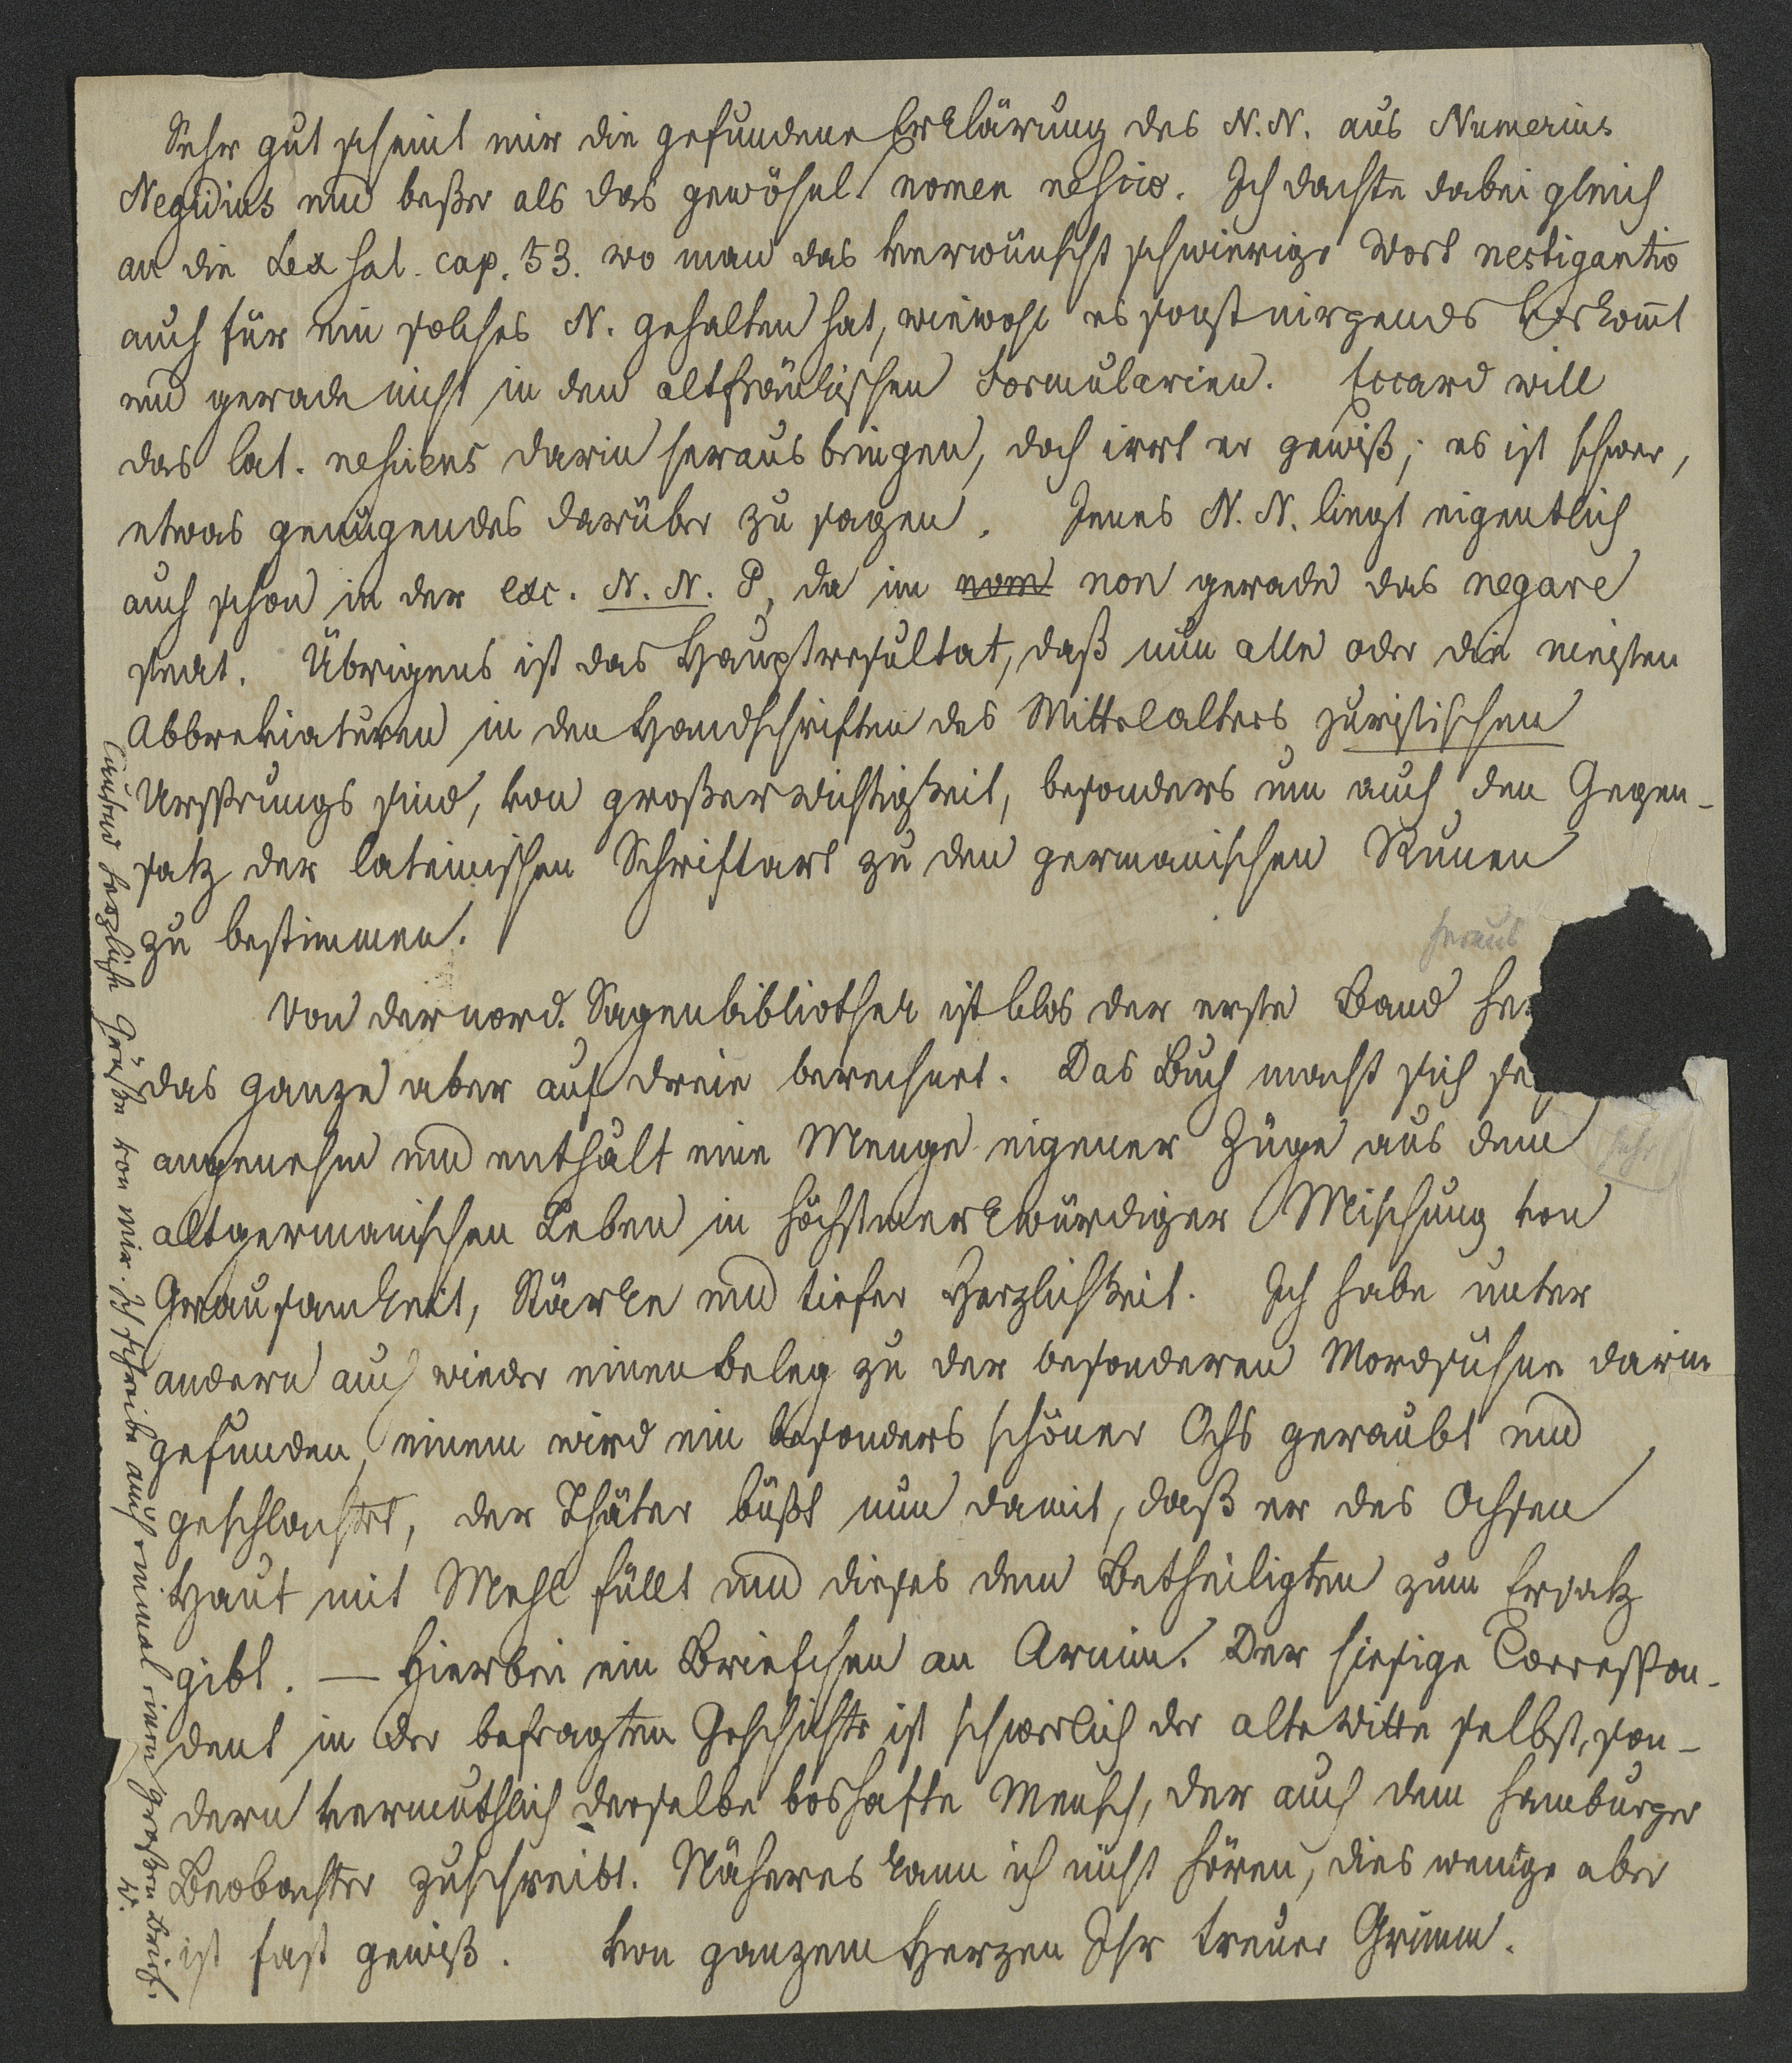 Sehr gut scheint mir die gefundene Erklärung des N. N. aus Numerius
Negidius und beßer als das gewöhnl. nomen nescio. Ich dachte dabei gleich
an die Lex sal. cap. 53. wo man das verwünscht schwierige Wort nestigantio
auch für ein solches N. gehalten hat, wiewohl es sonst nirgends vorkom̄t
und gerade nicht in den altfränkischen Formularien. Eccard will
das lat. nesciens darin heraus bringen, doch irrt er gewiß; es ist schwer,
etwas genügendes darüber zu sagen. Jenes N. N. liegt eigentlich
auch schon in der exc. N. N. P, da im nom non gerade das negare
steckt. Übrigens ist das Hauptresultat, daß nun alle oder die meisten
Abbreviaturen in den Handschriften des Mittelalters juristischen
Ursprungs sind, von großer Wichtigkeit, besonders um auch den Gegen-
satz der lateinischen Schriftart zu den germanischen Runen
zu bestimmen.
heraus
Von der nord. Sagenbibliothek ist blos der erste Band her
das ganze aber auf dreie berechnet. Das Buch macht sich se
sehr
angenehm und enthält eine Menge eigener Züge aus dem
altgermanischen Leben in höchstmerkwürdiger Mischung von
Grausamkeit, Stärke und tiefer Herzlichkeit. Ich habe unter
andern auch wieder einen Beleg zu der besonderen Mordsühne darin
gefunden, einem wird ein besonders schöner Ochs geraubt und
geschlachtet, der Thäter büßt nun damit, daß er des Ochsen
Haut mit Mehl füllt und dieses dem Betheiligten zum Ersatz
gibt. — Hierbei ein Briefchen an Arnim. Der hiesige Correspon-
dent in der befragten Geschichte ist schwerlich der alte Witte selbst, son-
dern vermuthlich derselbe boshafte Mensch, der auch dem Hamburger
Beobachter zuschreibt. Näheres kann ich nicht hören, dies wenige aber
ist fast gewiß. Von ganzem Herzen Ihr treuer Grimm.
Tausend herzliche Grüße von mir. Ich schreibe auch einmal einen großen Brief.
W.